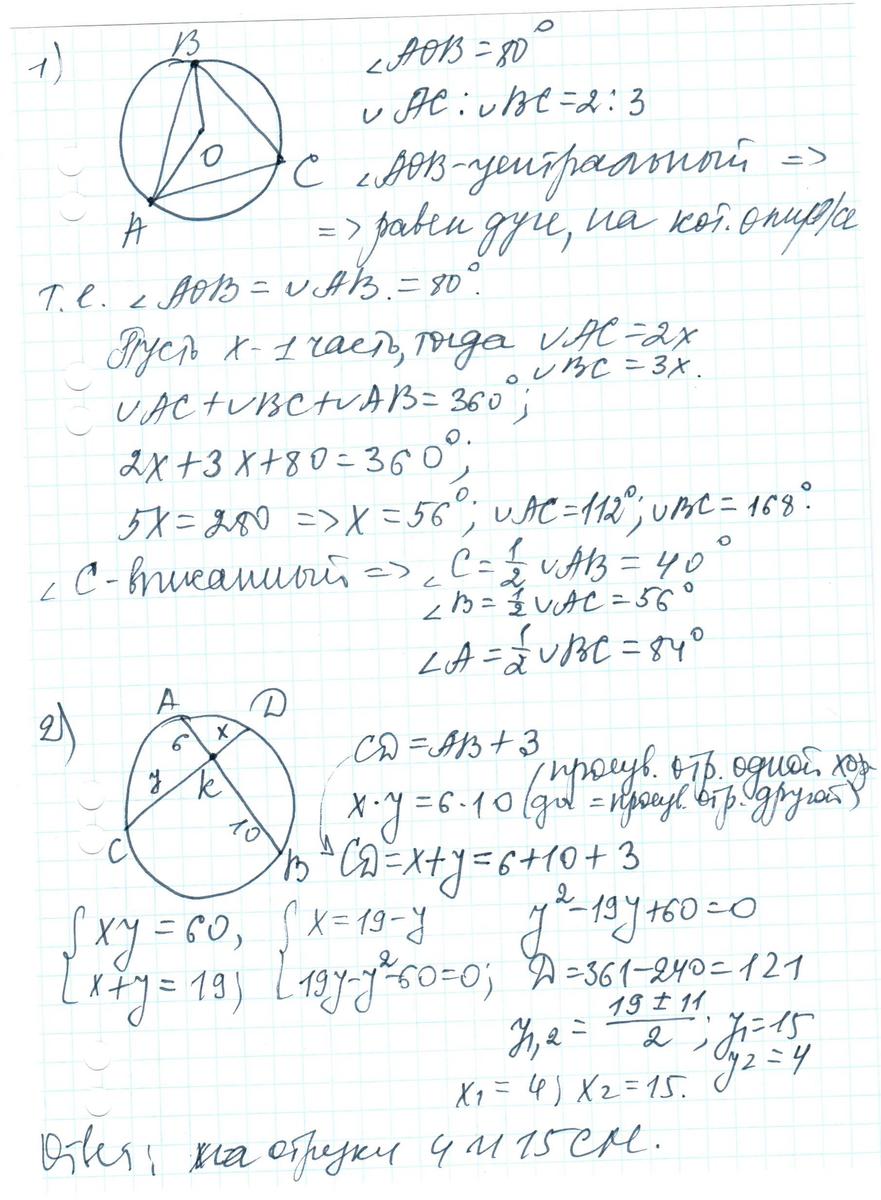 1)
B
O
C
A
∠AOB = 80°
∪AC : ∪BC = 2 : 3
∠AOB - центральный =>
=> равен дуге, на кот. опир/ся
т.е. ∠AOB = ∪AB = 80°.
Пусть x - 1 часть, тогда ∪AC = 2x
∪BC = 3x.
∪AC + ∪BC + ∪AB = 360°;
2x + 3x + 80 = 360°;
5x = 280 => x = 56°; ∪AC = 112°; ∪BC = 168°.
∠C - вписанный => ∠C = 1/2 ∪AB = 40°
∠B = 1/2 ∪AC = 56°
∠A = 1/2 ∪BC = 84°
2)
A
D
6
x
y
K
10
C
B
CD = AB + 3
x · y = 6 · 10 (произв. отр. одной хор-
ды = произв. отр. другой)
CD = x + y = 6 + 10 + 3
{ xy = 60, { x = 19 - y y² - 19y + 60 = 0
{ x + y = 19; { 19y - y² - 60 = 0; D = 361 - 240 = 121
y1,2 = (19 ± 11)/2; y1 = 15
y2 = 4
x1 = 4; x2 = 15.
Ответ: на отрезки 4 и 15 см.